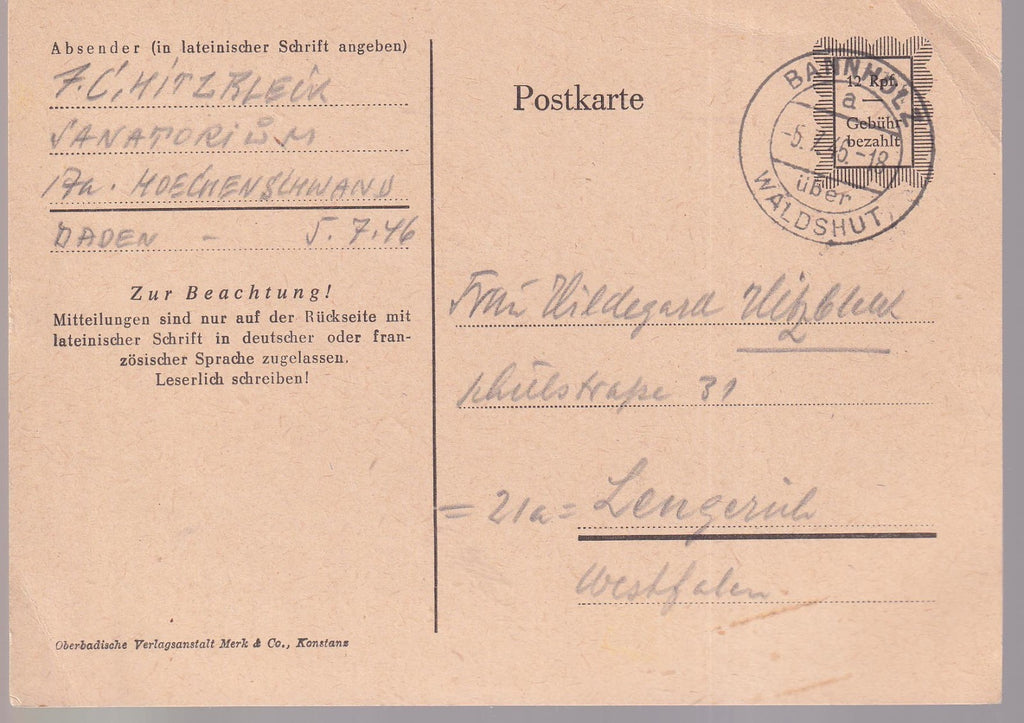 Absender (in lateinischer Schrift angeben)
SANATORIUM
17a. HOECHENSCHWAND
BADEN - 5.7.46
Zur Beachtung!
Mitteilungen sind nur auf der Rückseite mit
lateinischer Schrift in deutscher oder fran-
zösischer Sprache zugelassen.
Leserlich schreiben!
Oberbadische Verlagsanstalt Merk & Co., Konstanz
Postkarte
12 Rpf.
Gebühr
bezahlt
BANNHOLZ
a
-5.7.46.-18
über
WALDSHUT
Frau Hildegard Hitzbleck
Schulstraße 31
=21a= Lengerich
Westfalen